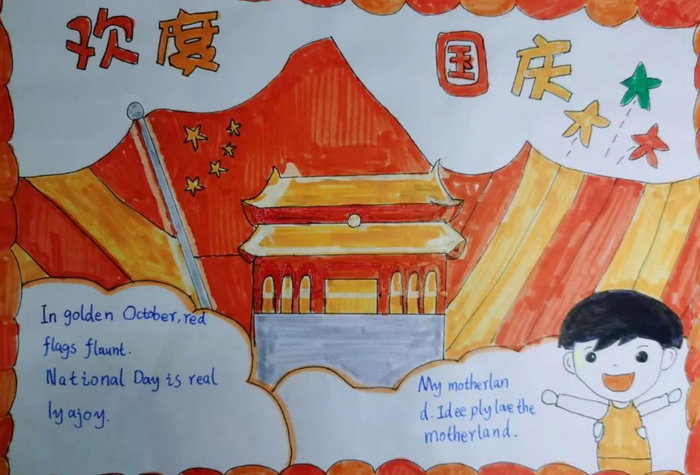 欢度 国庆
In golden October, red
flags flaunt.
National Day is real
ly a joy.
My motherlan
d. I deeply love the
motherland.